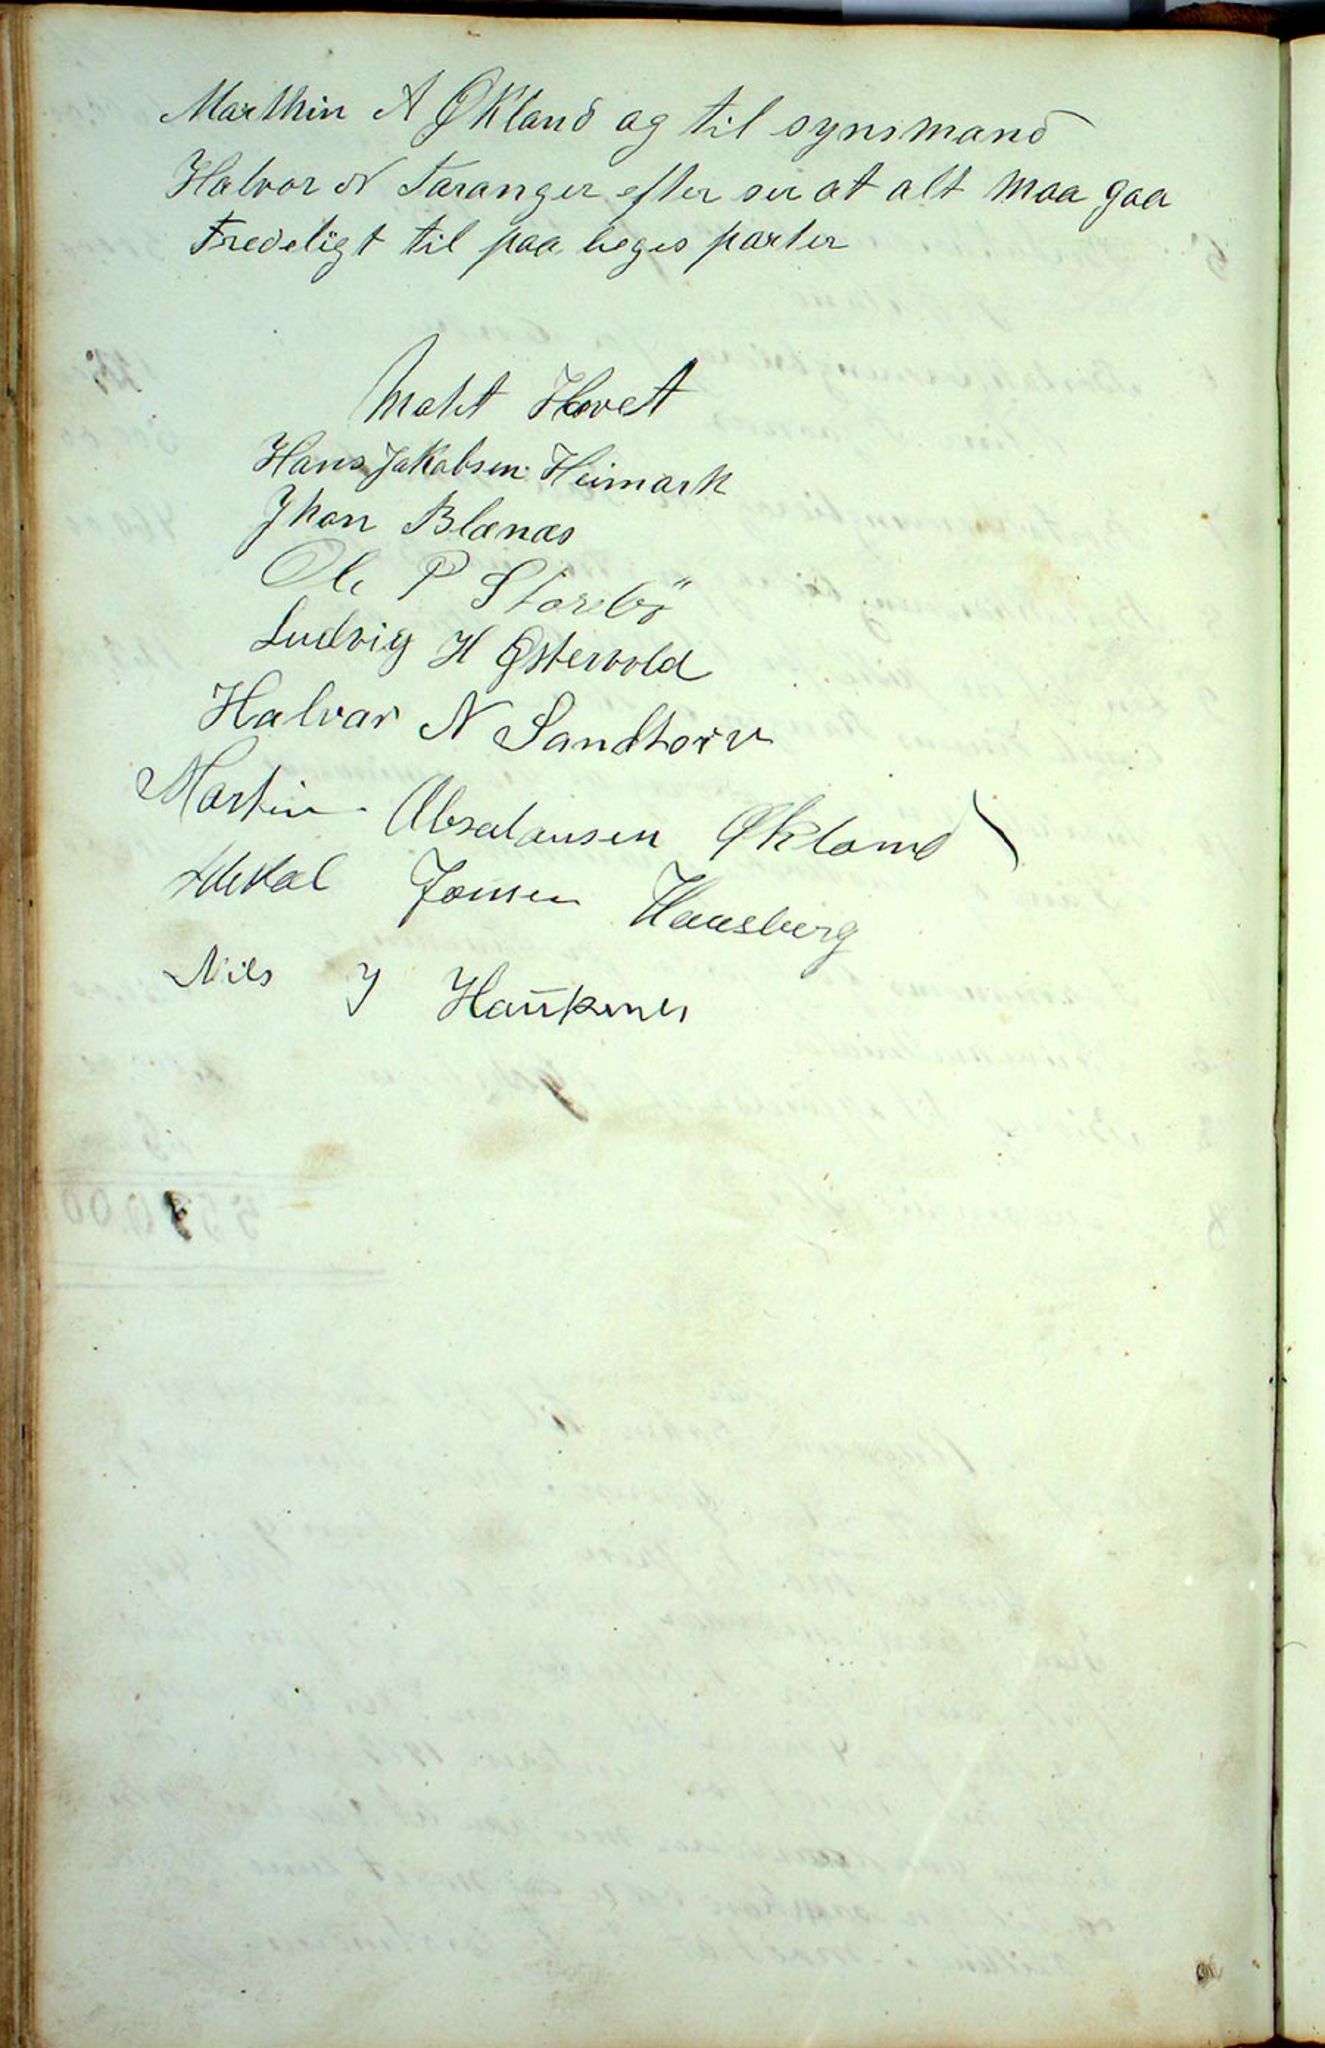 Marthin A Økland og til synsmand
Halvor N Taranger efter ser at alt maa gaa
Fredeligt til paa beges parter
Hovet
Hans Jakobsen Heimark
Jhon Blænæs
Ole P Storebö
Ludvig H Østervold
Halvar N Sandtorv
Martin Absalonsen Økland
Jonsen Haasberg
Nils J Haukenes